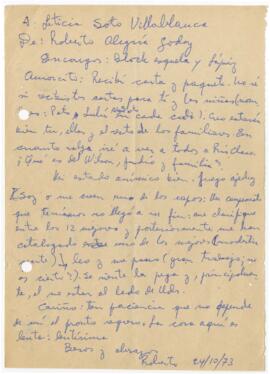 A: Leticia Soto Villablanca
De: Roberto Alegría Godoy
Encargos: Block esquela y lápiz
Amorcito: Recibí carta y paquete. No sé
si recibistes cartas para ti y los niños
(Pato y Julí cada cada). Como estarán
bien tú, ellos y el resto de los familiares. En
cuanto salga iré a ver a todos a
¿Qué es del Wilson, Julio y familia?
Mi estado anímico bien. Juego ajedrez
Soy o me creen uno de los capos: Un campeonato
que teníamos no llegó a su fin: me clasifiqué
entre los 12 mejores y posteriormente me han
catalogado uno de los mejores (modestia
), leo y me paseo (gran trabajo; no
es cierto?). Se siente la pega y, principalmen
te, el no estar al lado de Uds.
Cariño: Ten paciencia que no depende
de mí el pronto regreso. La cosa aquí es
lenta: lentísima
Besos y abrazos
Roberto 24/10/73